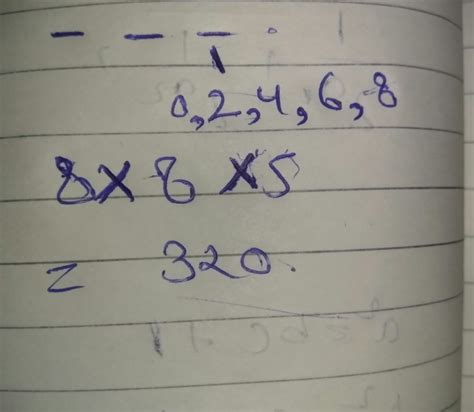 _ _ _ .
0,2,4,6,8
8×8×5
= 320.